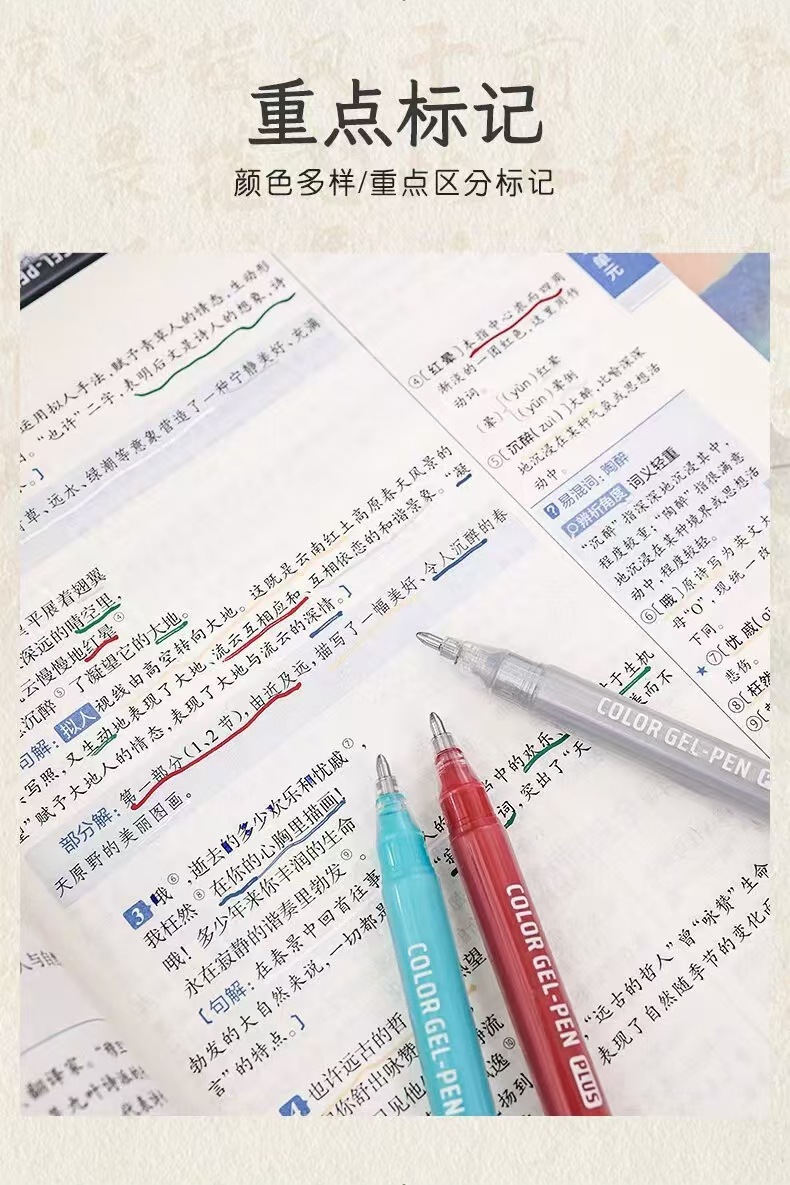 重点标记
颜色多样/重点区分标记
运用拟人手法,赋予青草人的情态,生动形
“也许”二字,表明后文是诗人的想象,诗
草、远水、绿潮等意象营造了一种宁静美好、充满
平展着翅翼
深远的晴空里,
云慢慢地红晕④
沉醉⑤了凝望它的大地。
句解:拟人 视线由高空转向大地。这既是云南红土高原春天风景的
写照,又生动地表现了大地、流云互相应和、互相依恋的和谐景象。“凝
望”赋予大地人的情态,表现了大地与流云的深情。】
部分解:第一部分(1、2节),由近及远,描写了一幅美好、令人沉醉的春
天原野的美丽图画。
3 哦⑥,逝去的多少欢乐和忧戚⑦,
我枉然⑧在你的心胸里描画!
哦!多少年来你丰润的生命
永在寂静的谐奏里勃发⑨。
【句解:在春景中回首往事
勃发的大自然来说,一切都是
言”的特点。】
4 也许远古的哲
你舒出咏赞
④〔红晕〕本指中心浓而四周
渐淡的一团红色,这里用作
动词。
(晕){(yūn)红晕
(yūn)晕倒
⑤〔沉醉(zuì)〕大醉,比喻深深
地沉浸在某种气氛或思想活
动中。
易混词:陶醉
辨析角度 词义轻重
“沉醉”指深深地沉浸其中,
程度较重;“陶醉”指很满意
地沉浸在某种境界或思想活
动中,程度较轻。
⑥〔哦〕原诗写为英文大
母“O”,现统一改
下同。
★⑦〔忧戚(
悲伤。
⑧〔枉然
生机
而不
中的欢乐、
词,突出了“天
“远古的哲人”曾“咏赞”生命
表现了自然随季节的变化而
COLOR GEL-PEN
COLOR GEL-PEN PLUS
COLOR GEL-PEN
单元
翻译家。